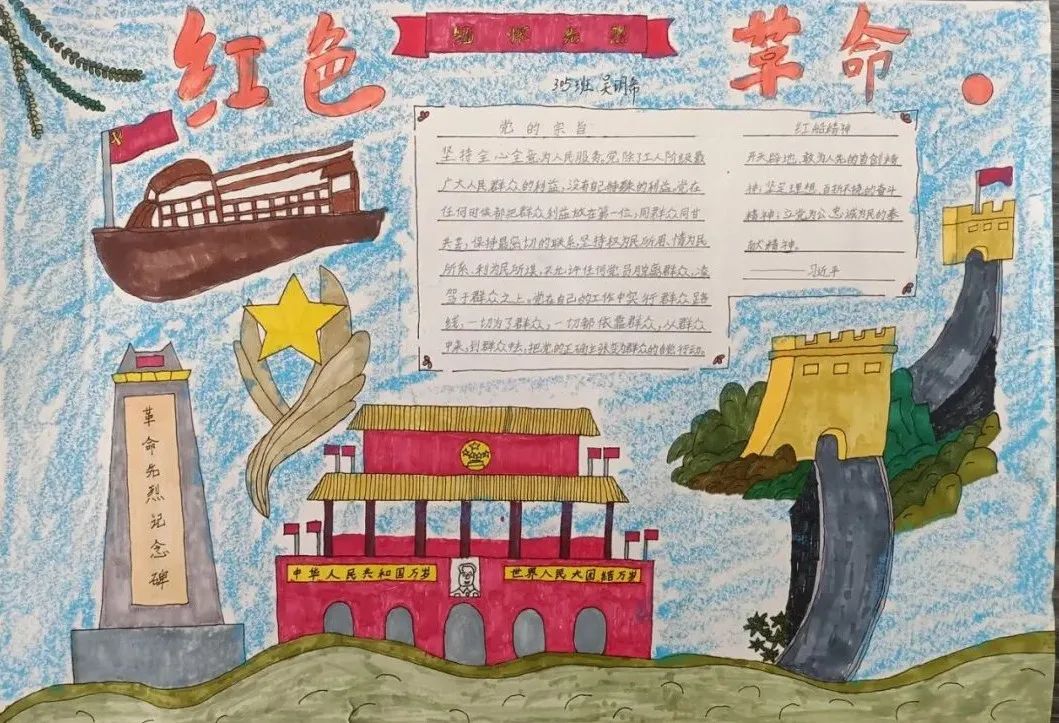 红色
革命
党的宗旨
坚持全心全意为人民服务。党除了工人阶级最
广大人民群众的利益，没有自己特殊的利益。党在
任何时候都把群众利益放在第一位，同群众同甘
共苦，保持最密切的联系，坚持权为民所用、情为民
所系、利为民所谋，不允许任何党员脱离群众，凌
驾于群众之上。党在自己的工作中实行群众路
线，一切为了群众，一切都依靠群众，从群众
中来，到群众中去，把党的正确主张变为群众的自觉行动。
红船精神
开天辟地、敢为人先的首创精
神；坚定理想、百折不挠的奋斗
精神；立党为公、忠诚为民的奉
献精神。
——习近平
革命先烈记念碑
中华人民共和国万岁
世界人民大团结万岁